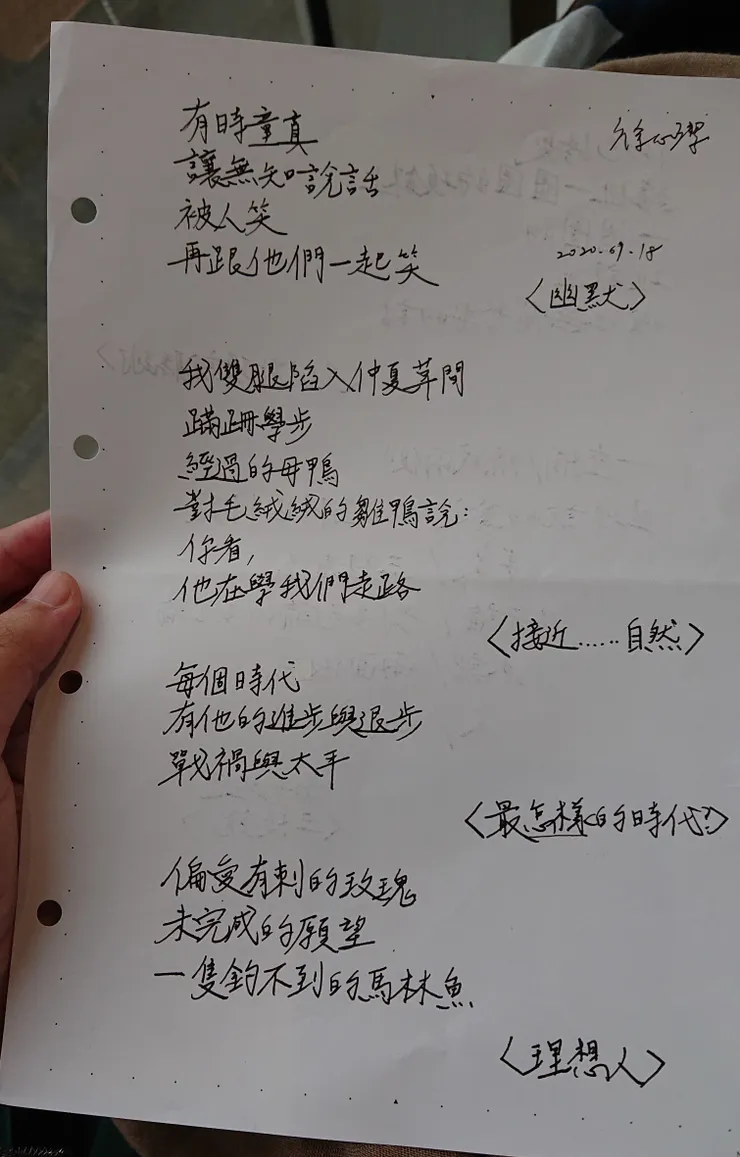 有時童真
讓無知說話
被人笑
再跟他們一起笑
2020.09.18
〈幽默〉
我雙腿陷入仲夏草間
蹣跚學步
經過的母鴨
對毛絨絨的雛鴨說：
你看，
他在學我們走路
〈接近……自然〉
每個時代
有他的進步與退步
戰禍與太平
〈最怎樣的時代?〉
偏愛有刺的玫瑰
未完成的願望
一隻釣不到的馬林魚
〈理想人〉